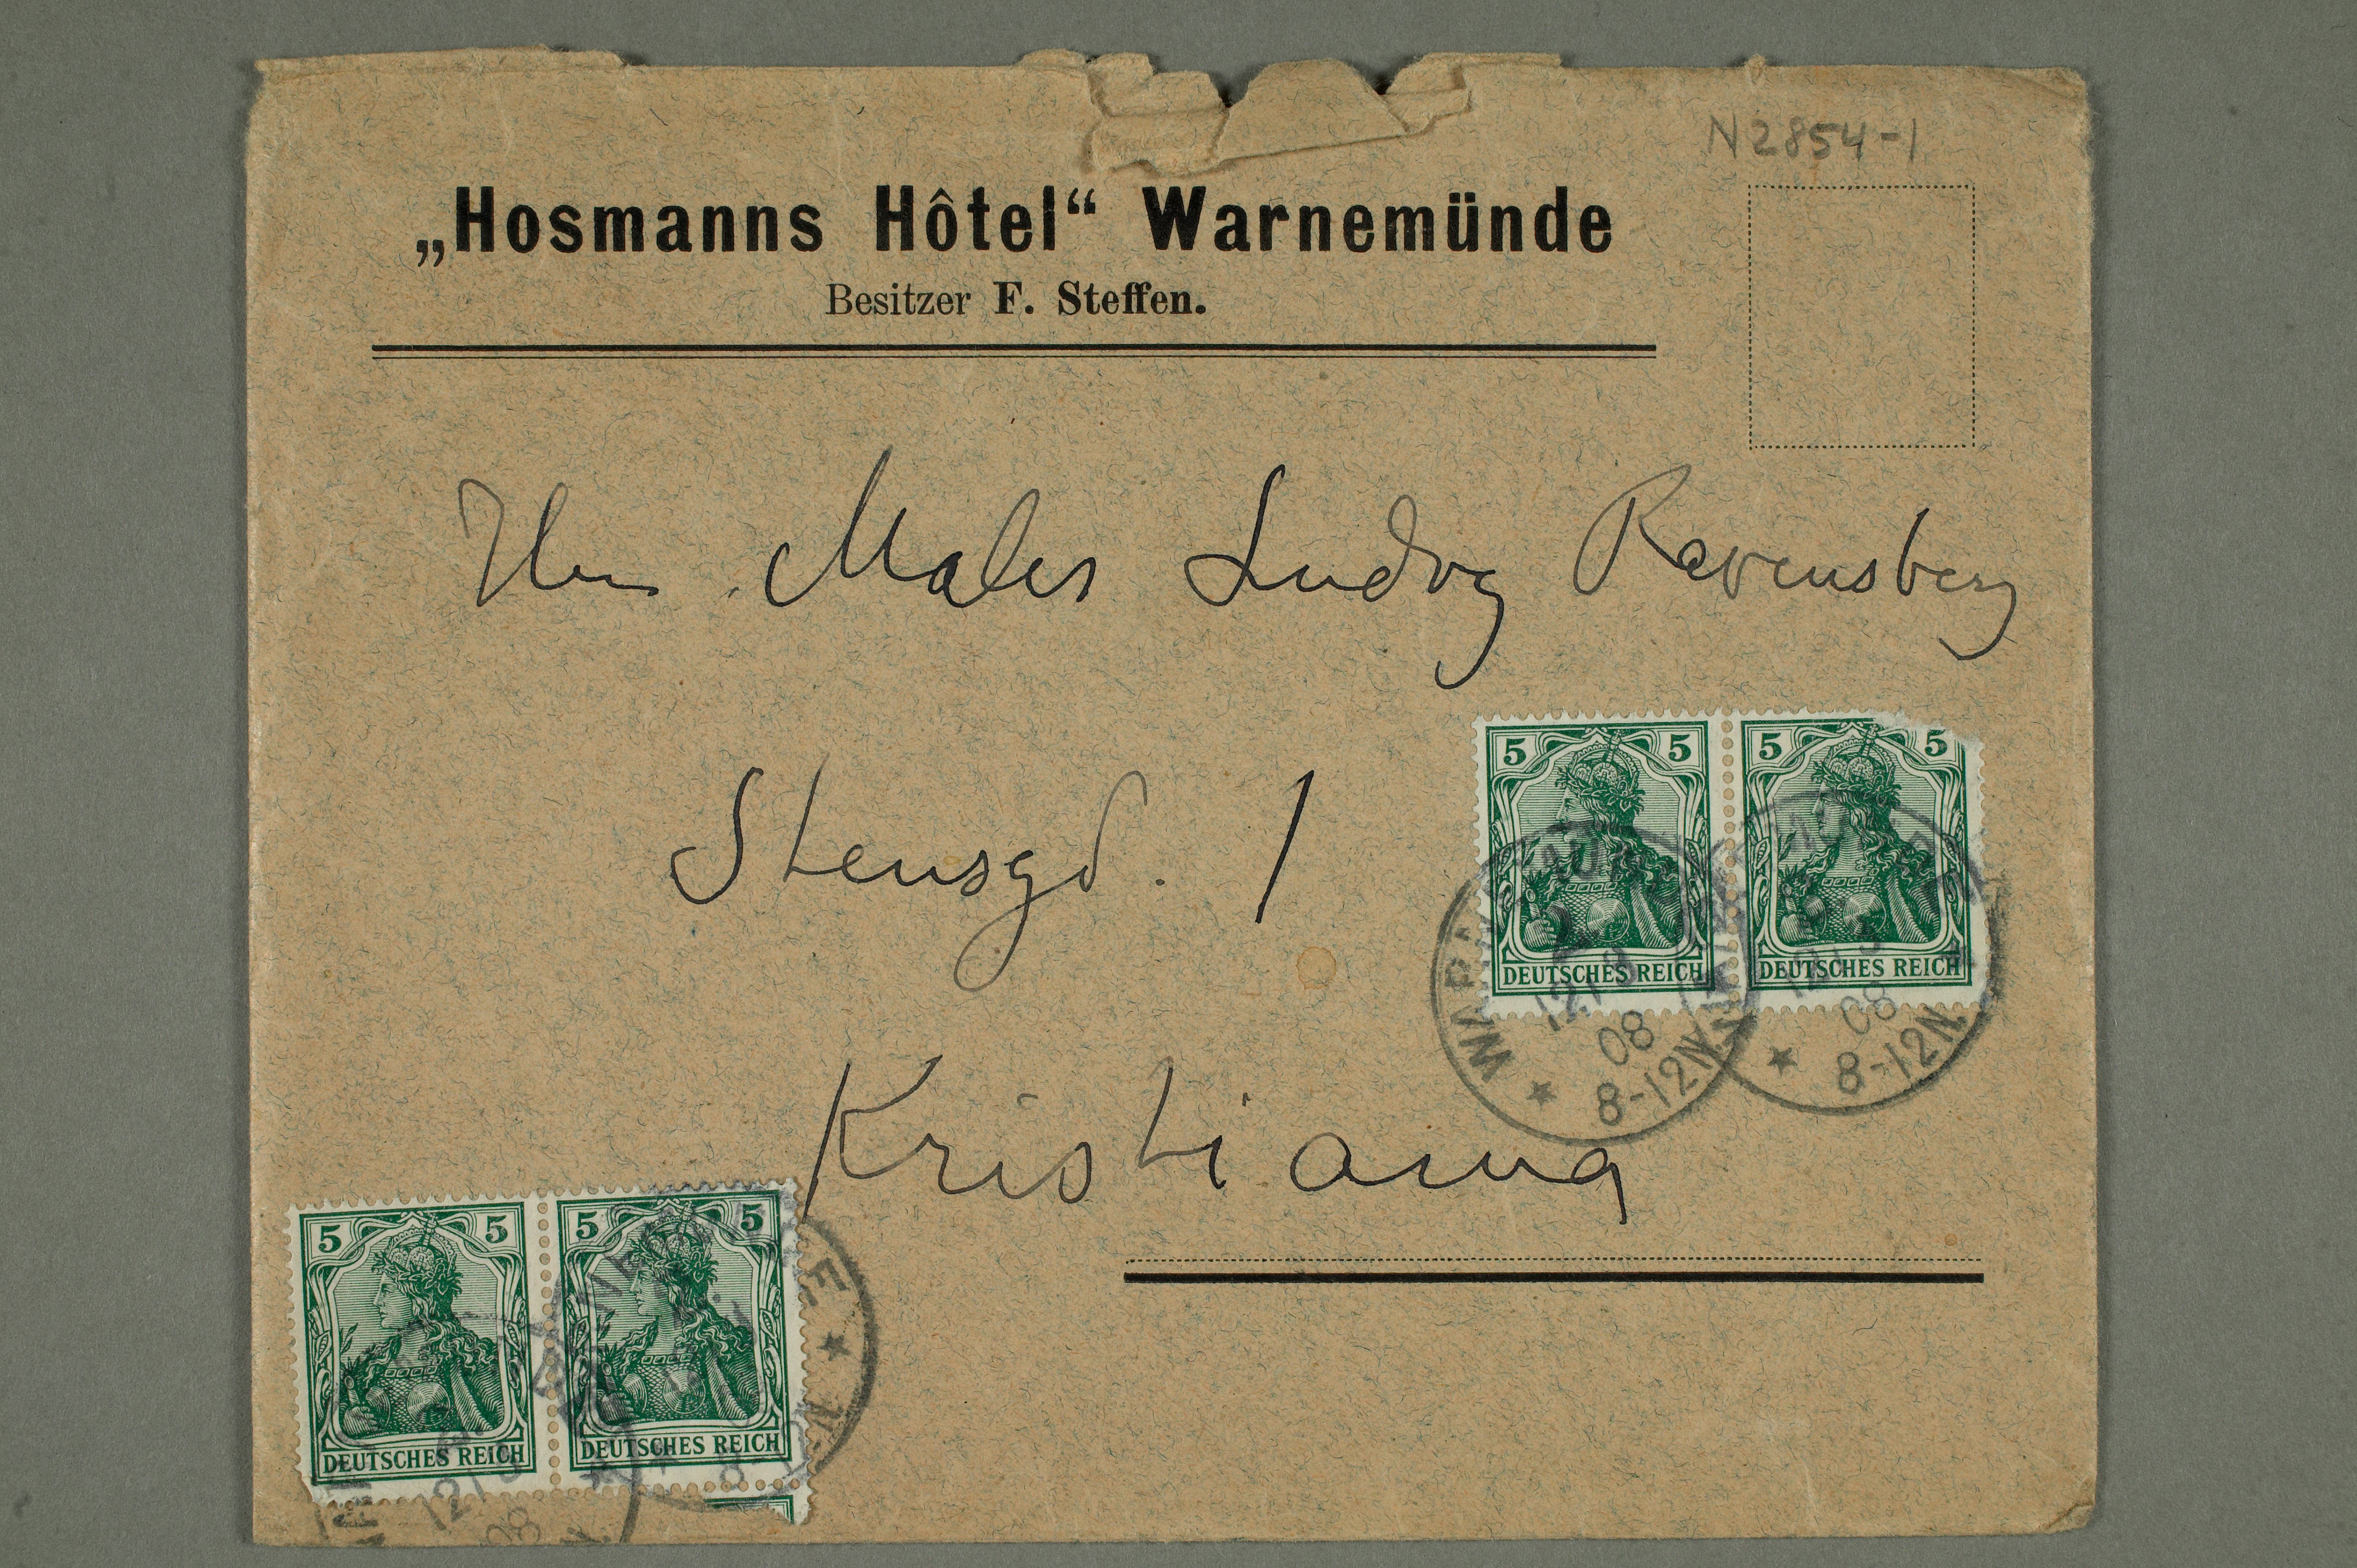 N 2854-1
„Hosmanns Hôtel“ Warnemünde
Besitzer F. Steffen.
Herrn Maler Ludvig Ravensberg
Stensgd. 1
Kristiania
5 5
DEUTSCHES REICH
5 5
DEUTSCHES REICH
08
8-12N.
08
8-12N.
5 5
DEUTSCHES REICH
5 5
DEUTSCHES REICH
08